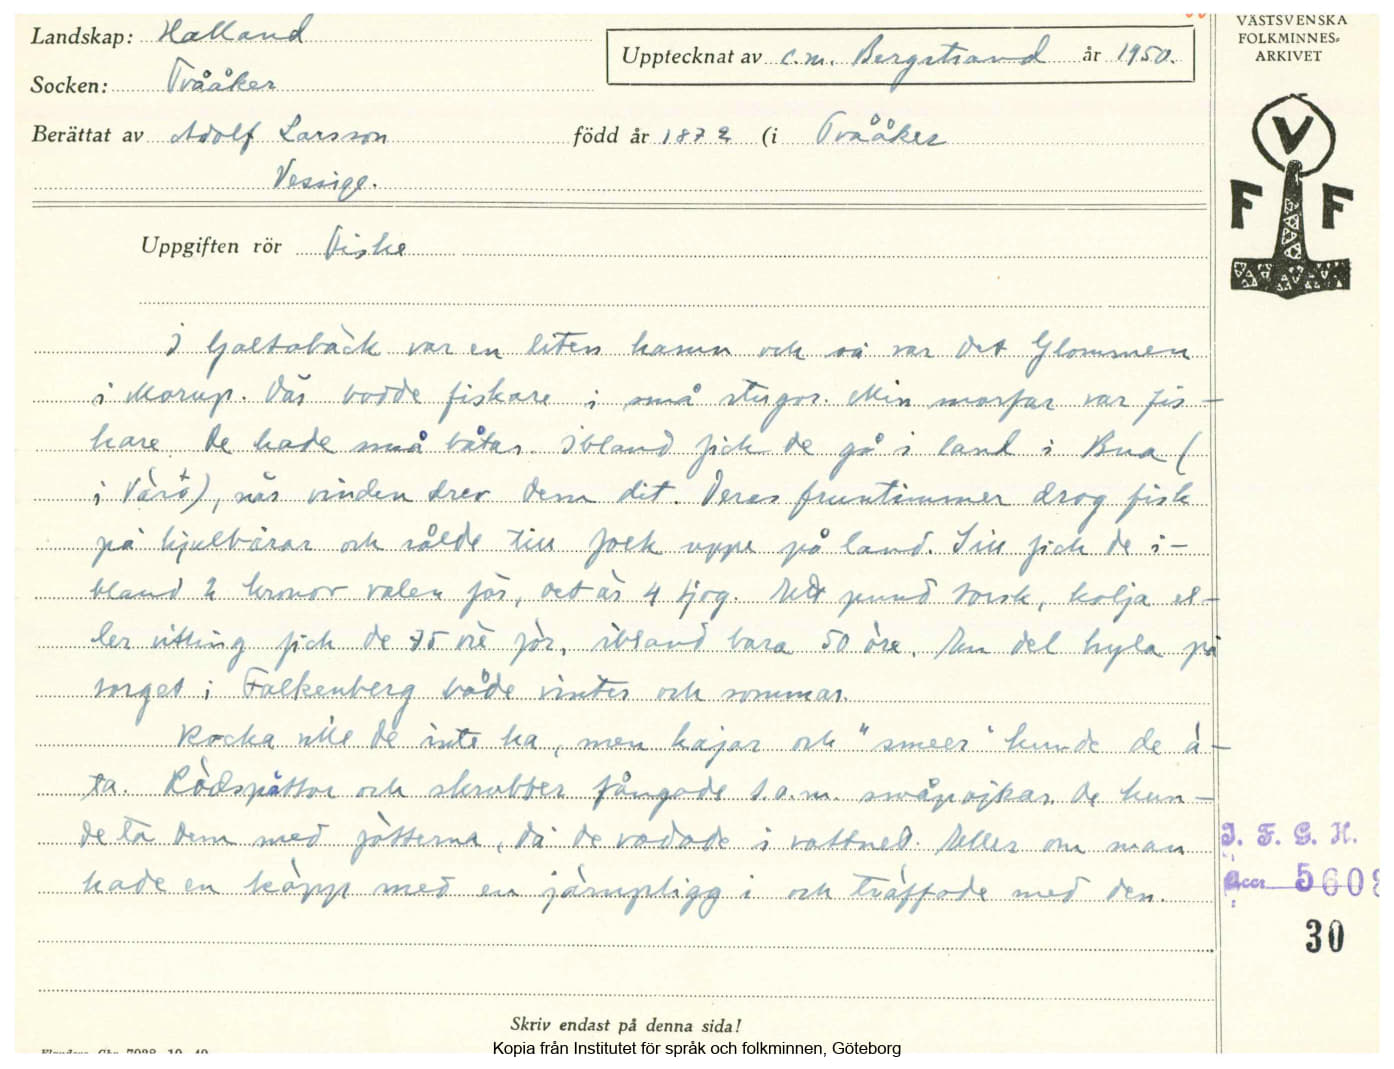 Landskap: Halland
Socken: Tvååker
Upptecknat av C.M. Bergstrand år 1950.
Berättat av Adolf Larsson född år 1872 (i Tvååker
Vessige.
VÄSTSVENSKA
FOLKMINNES-
ARKIVET
V
F F
Uppgiften rör Fiske
I Galtabäck var en liten hamn och så var det Glommen
i Morup. Där bodde fiskare i små stugor. Min morfar var fis-
kare. De hade små båtar. Ibland fick de gå i land i Bua (
i Värö), när vinden drev dem dit. Deras fruntimmer drog fisk
på hjulbårar och sålde till folk uppe på land. Sill fick de i-
bland 2 kronor valen för, det är 4 tjog. Ett pund torsk, kolja el-
ler vitling fick de 75 öre för, ibland bara 50 öre. En del hyla på
torget i Falkenberg både vinter och sommar.
Rocka ville de inte ha, men hajar och "smeer" kunde de ä-
ta. Rödspättor och skrubber fångade t.o.m. småpojkar. De kun-
de ta dem med fötterna, då de vadade i vattnet. Eller om man
hade en käpp med en järnpligg i och träffade med den.
I. F. G. H.
Acc. 5608
30
Skriv endast på denna sida!
Kopia från Institutet för språk och folkminnen, Göteborg